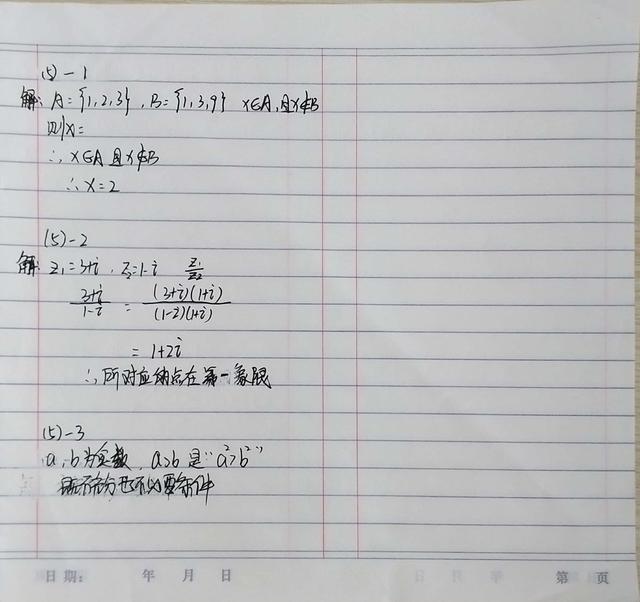 (5)-1
解: A={1,2,3}, B={1,3,9} x∈A,且x∉B
则x=
∴ x∈A且x∉B
∴ x=2
(5)-2
解: z₁=3+i, z₂=1-i z₁/z₂
(3+i)/(1-i) = (3+i)(1+i)/(1-i)(1+i)
= 1+2i
∴所对应的点在第一象限
(5)-3
a,b为实数, a>b是"a²>b²"
既不充分也不必要条件
日期: 年 月 日
第 页